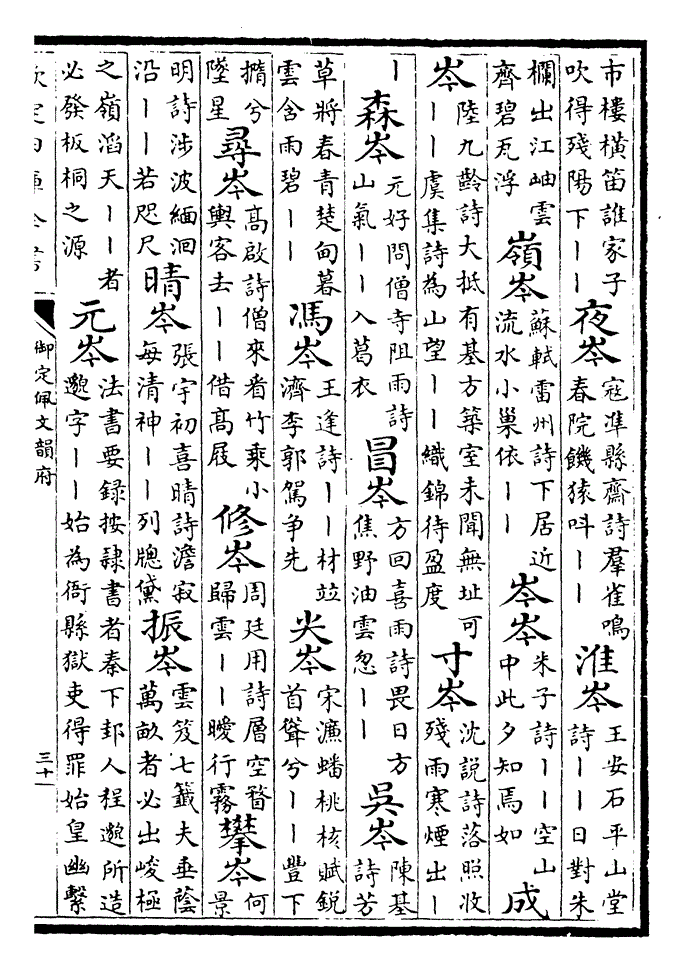 市樓橫笛誰家子
吹得殘陽下丨丨
夜岑
寇準縣齋詩羣雀鳴
春院饑猿呌丨丨
淮岑
王安石平山堂
詩丨丨日對朱
欄出江岫雲
齊碧瓦浮
嶺岑
蘇軾雷州詩下居近
流水小巢依丨丨
岑岑
朱子詩丨丨空山
中此夕知焉如
成
岑
陸九齡詩大抵有基方築室未聞無址可
丨丨虞集詩為山望丨丨織錦待盈度
寸岑
沈説詩落照收
殘雨寒煙出丨
丨
森岑
元好問僧寺阻雨詩
山氣丨丨入葛衣
冒岑
方回喜雨詩畏日方
焦野油雲忽丨丨
吳岑
陳基
詩芳
草將春青楚甸暮
雲含雨碧丨丨
馮岑
王逢詩丨丨材竝
濟李郭駕争先
尖岑
宋濂蟠桃核賦鋭
首聳兮丨丨豐下
擶兮
墜星
尋岑
高啟詩僧來看竹乘小
輿客去丨丨借高屐
修岑
周廷用詩層空瞀
歸雲丨丨曖行霧
攀岑
何
景
明詩涉波緬洄
沿丨丨若咫尺
晴岑
張宇初喜晴詩澹寂
每清神丨丨列牕黛
振岑
雲笈七籤夫垂蔭
萬畝者必出峻極
之嶺滔天丨丨者
必發板桐之源
元岑
法書要録按隷書者秦下邽人程邈所造
邈字丨丨始為衙縣獄吏得罪始皇幽繫
欽定四庫全書
御定佩文韻府
三十一